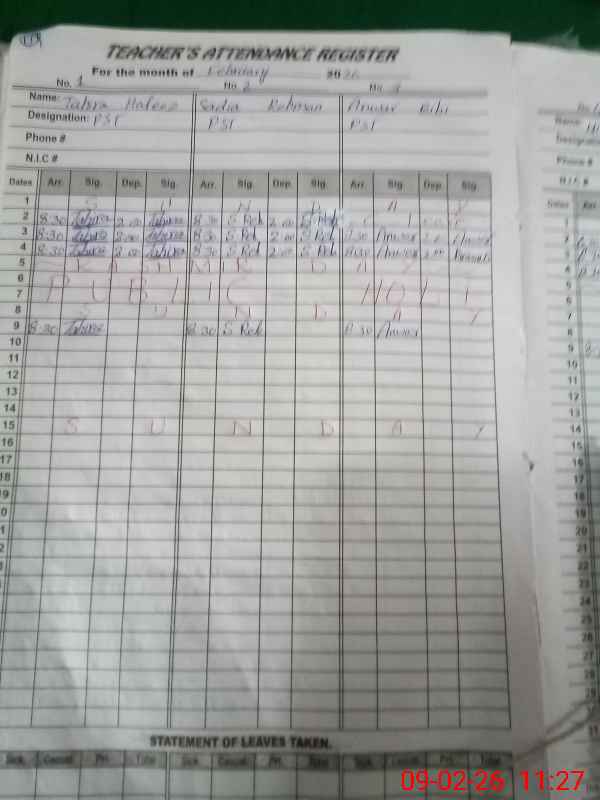 TEACHER'S ATTENDANCE REGISTER
For the month of February 2026
No. 1 No. 2 No. 3
Name: Tahira Hafeez Sadia Rehman Anwar Bibi
Designation: PST PST PST
Phone #
N.I.C #
Dates Arr. Sig. Dep. Sig. Arr. Sig. Dep. Sig. Arr. Sig. Dep. Sig.
1 S U N D A Y
2 8:30 Tahira 2:00 Tahira 8:30 S Reh 2:00 S Reh
3 8:30 Tahira 2:00 Tahira 8:30 S Reh 2:00 S Reh 8:30 Anwar 2:00 Anwar
4 8:30 Tahira 2:00 Tahira 8:30 S Reh 2:00 S Reh 8:30 Anwar 2:00
5 KASHMIR DAY
6
7 PUBLIC HOLI
8 S U N D A Y
9 8:30 Tahira 8:30 S Reh 8:30 Anwar
10
11
12
13
14
15 S U N D A Y
16
17
18
STATEMENT OF LEAVES TAKEN.
Sick. Casual Pri. Total Sick. Casual Pri. Total Sick. Casual Pri. Total
09-02-26 11:27